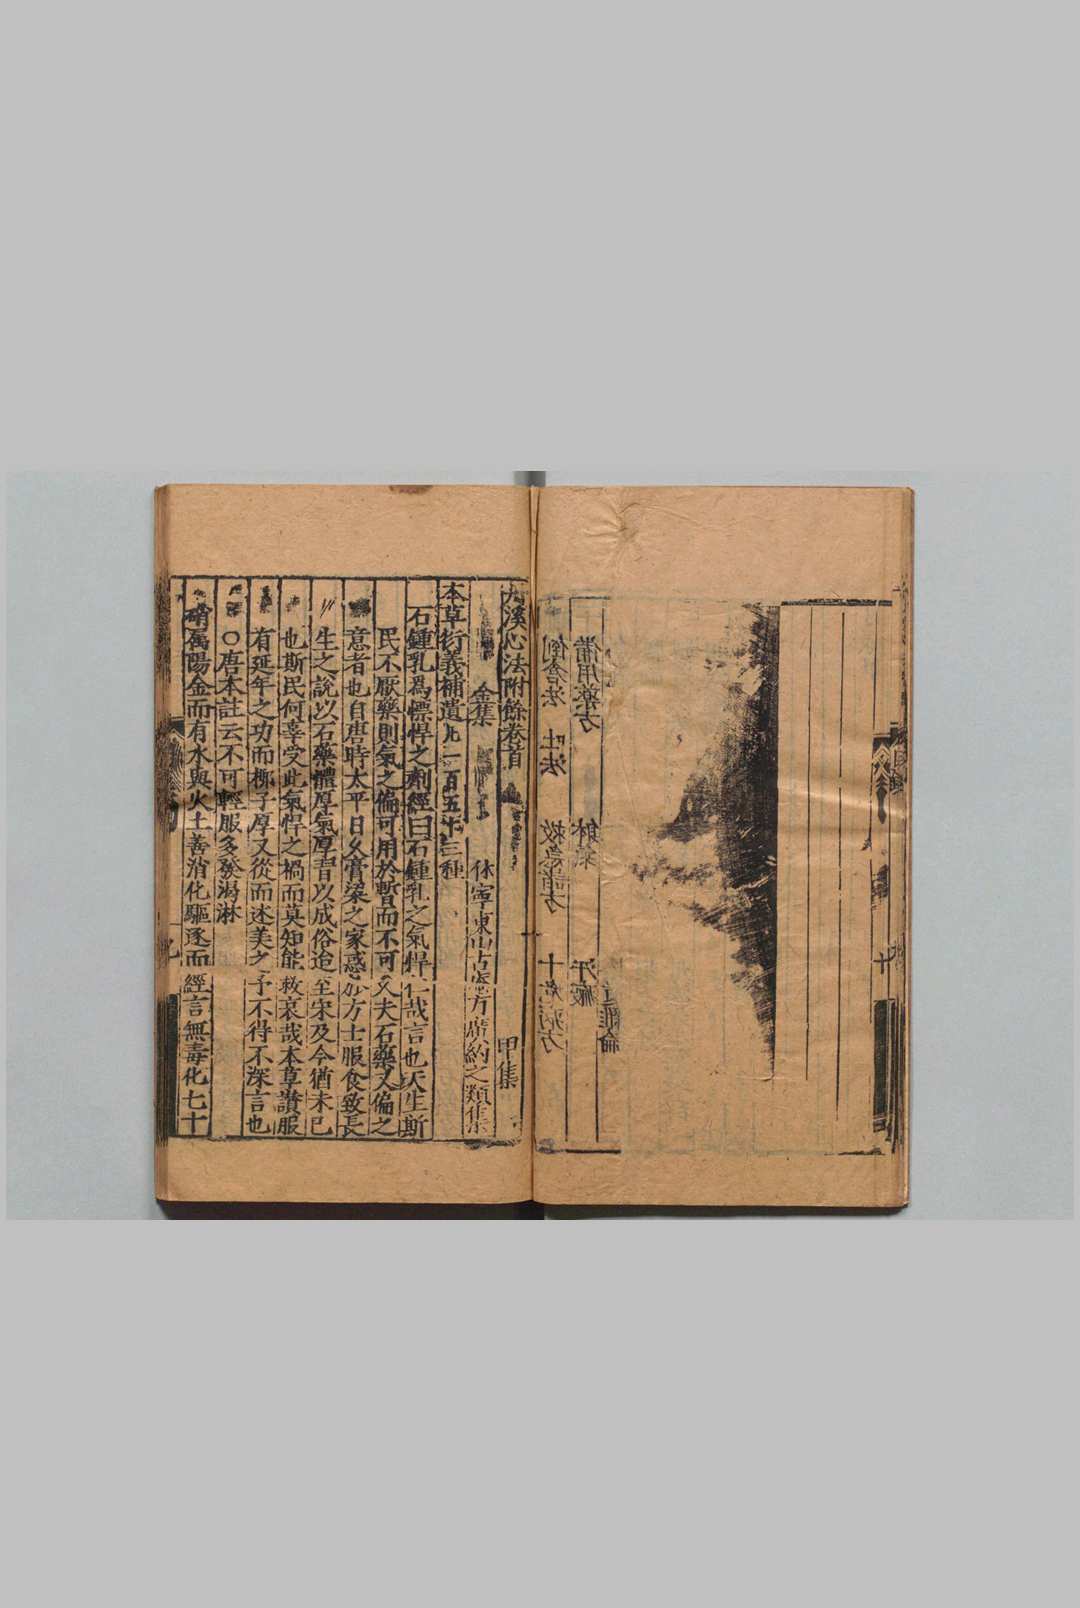 溪心法附餘卷首
甲集
金集 休寧東山古 方廣約之類集
本草衍義補遺凡一百五十三種
石鍾乳爲慓悍之劑經曰石鍾乳之氣悍仁哉言也天生斯
民不厭藥則氣之偏可用於暫而不可久夫石藥又偏之
意者也自唐時太平日久膏粱之家惑於方士服食致長
生之說以石藥體厚氣厚習以成俗迨至宋及今猶未已
也斯民何辜受此氣悍之禍而莫知能救哀哉本草讚服
有延年之功而柳子厚又從而述美之予不得不深言也
○唐本註云不可輕服多發渴淋
硝屬陽金而有水與火土善消化驅逐而經言無毒化七十
雜論
備用藥方 解 汗
倒倉法 吐法 救急諸方 十 方
十